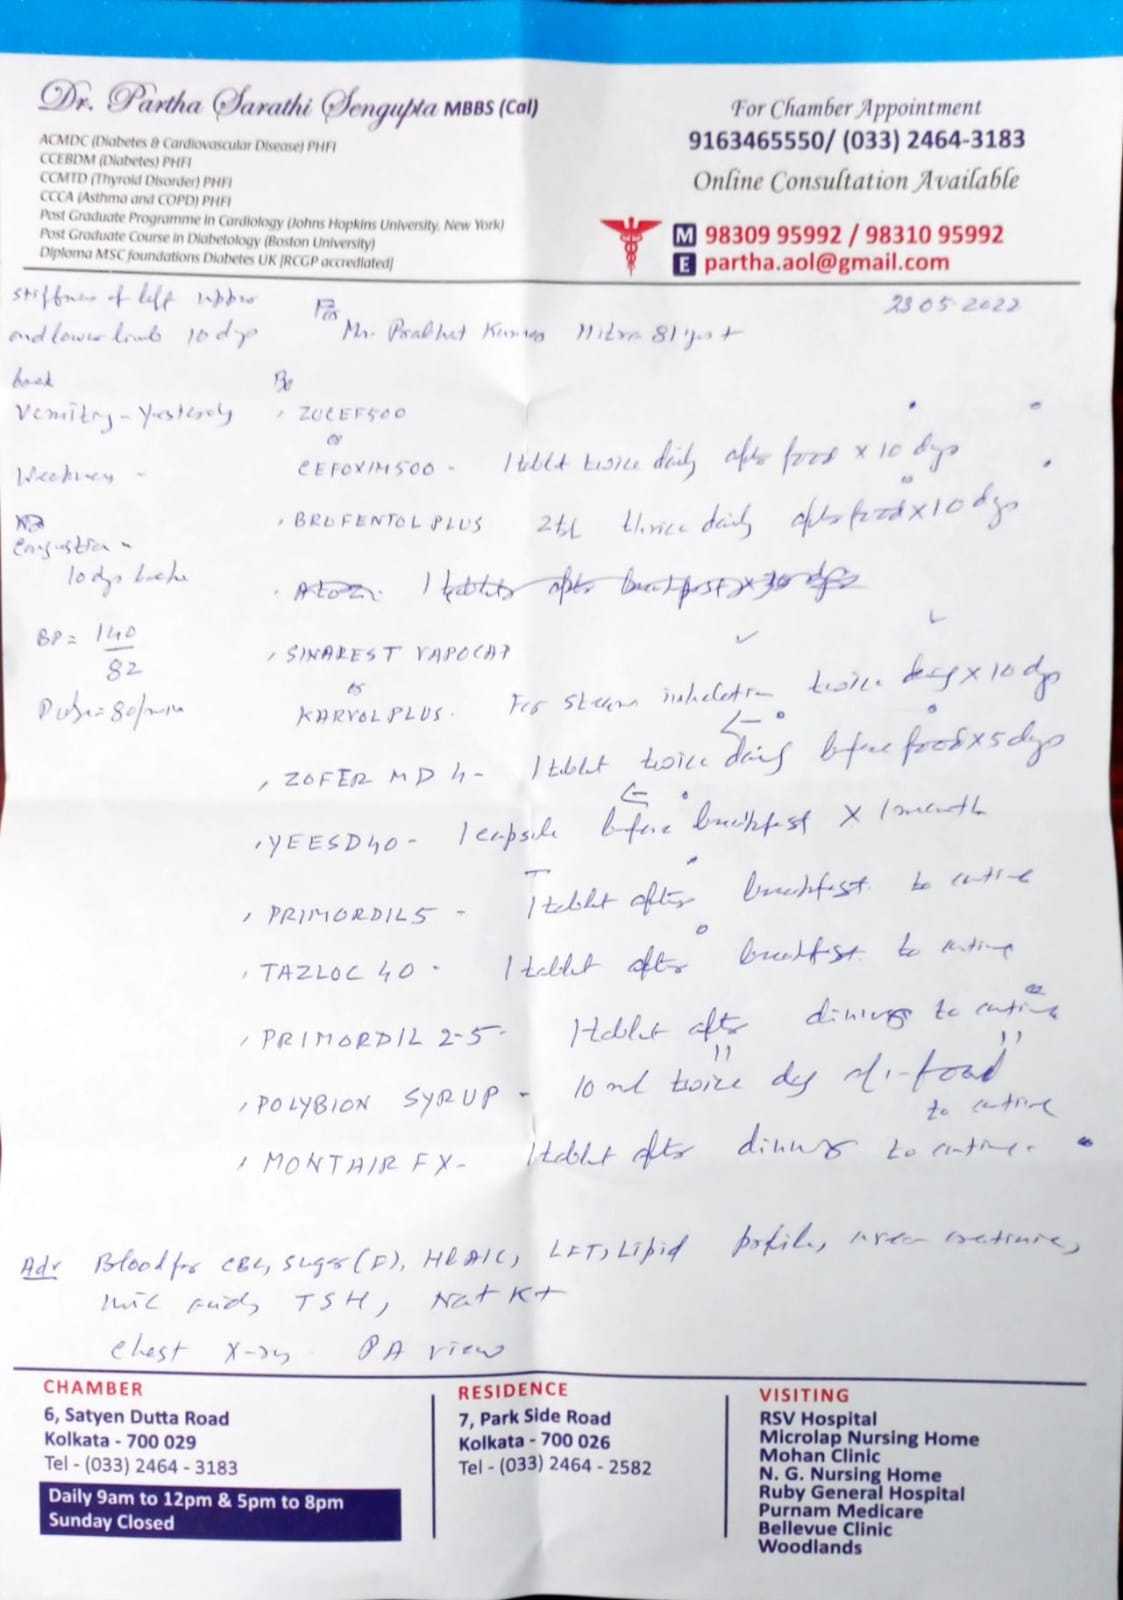 Dr. Partha Sarathi Sengupta MBBS (Cal)
ACMDC (Diabetes & Cardiovascular Disease) PHFI
CCEBDM (Diabetes) PHFI
CCMTD (Thyroid Disorder) PHFI
CCCA (Asthma and COPD) PHFI
Post Graduate Programme in Cardiology (Johns Hopkins University, New York)
Post Graduate Course in Diabetology (Boston University)
Diploma MSC foundations Diabetes UK [RCGP accrediated]
For Chamber Appointment
9163465550/ (033) 2464-3183
Online Consultation Available
M 98309 95992 / 98310 95992
E partha.aol@gmail.com
23 05-2022
For Mr. Prabhat Kumar Mitra 81 yrs +
stiffness of left upper
and lower limb 10 dys
back
Vomiting - Yesterday
Weakness -
Congestion -
10 dys back
BP = 140
82
Pulse = 80/min
Rx
, ZOCEF 500
or
CEFOXIM 500 - 1 tablet twice daily after food x 10 dys
, BROFENTOL PLUS 2 tsf thrice daily after food x 10 dys
1 tablet after breakfast x 30 dys
, SINAREST VAPOCAP
or
KARVOL PLUS. For steam inhalation twice daily x 10 dys
, ZOFER MD 4 - 1 tablet twice daily before food x 5 dys
, YEESD 40 - 1 capsule before breakfast x 1 month
, PRIMORDIL 5 - 1 tablet after breakfast. to continue
, TAZLOC 40 - 1 tablet after breakfast. to continue
, PRIMORDIL 2-5 - 1 tablet after dinner to continue
, POLYBION SYRUP - 10 ml twice day after food
to continue
, MONTAIR FX - 1 tablet after dinner to continue.
Adv Blood for CBC, Sugar (F), HbA1C, LFT, Lipid profile, urea creatinine,
uric acid, TSH, Na+ K+
Chest X-ray PA view
CHAMBER
6, Satyen Dutta Road
Kolkata - 700 029
Tel - (033) 2464 - 3183
Daily 9am to 12pm & 5pm to 8pm
Sunday Closed
RESIDENCE
7, Park Side Road
Kolkata - 700 026
Tel - (033) 2464 - 2582
VISITING
RSV Hospital
Microlap Nursing Home
Mohan Clinic
N. G. Nursing Home
Ruby General Hospital
Purnam Medicare
Bellevue Clinic
Woodlands